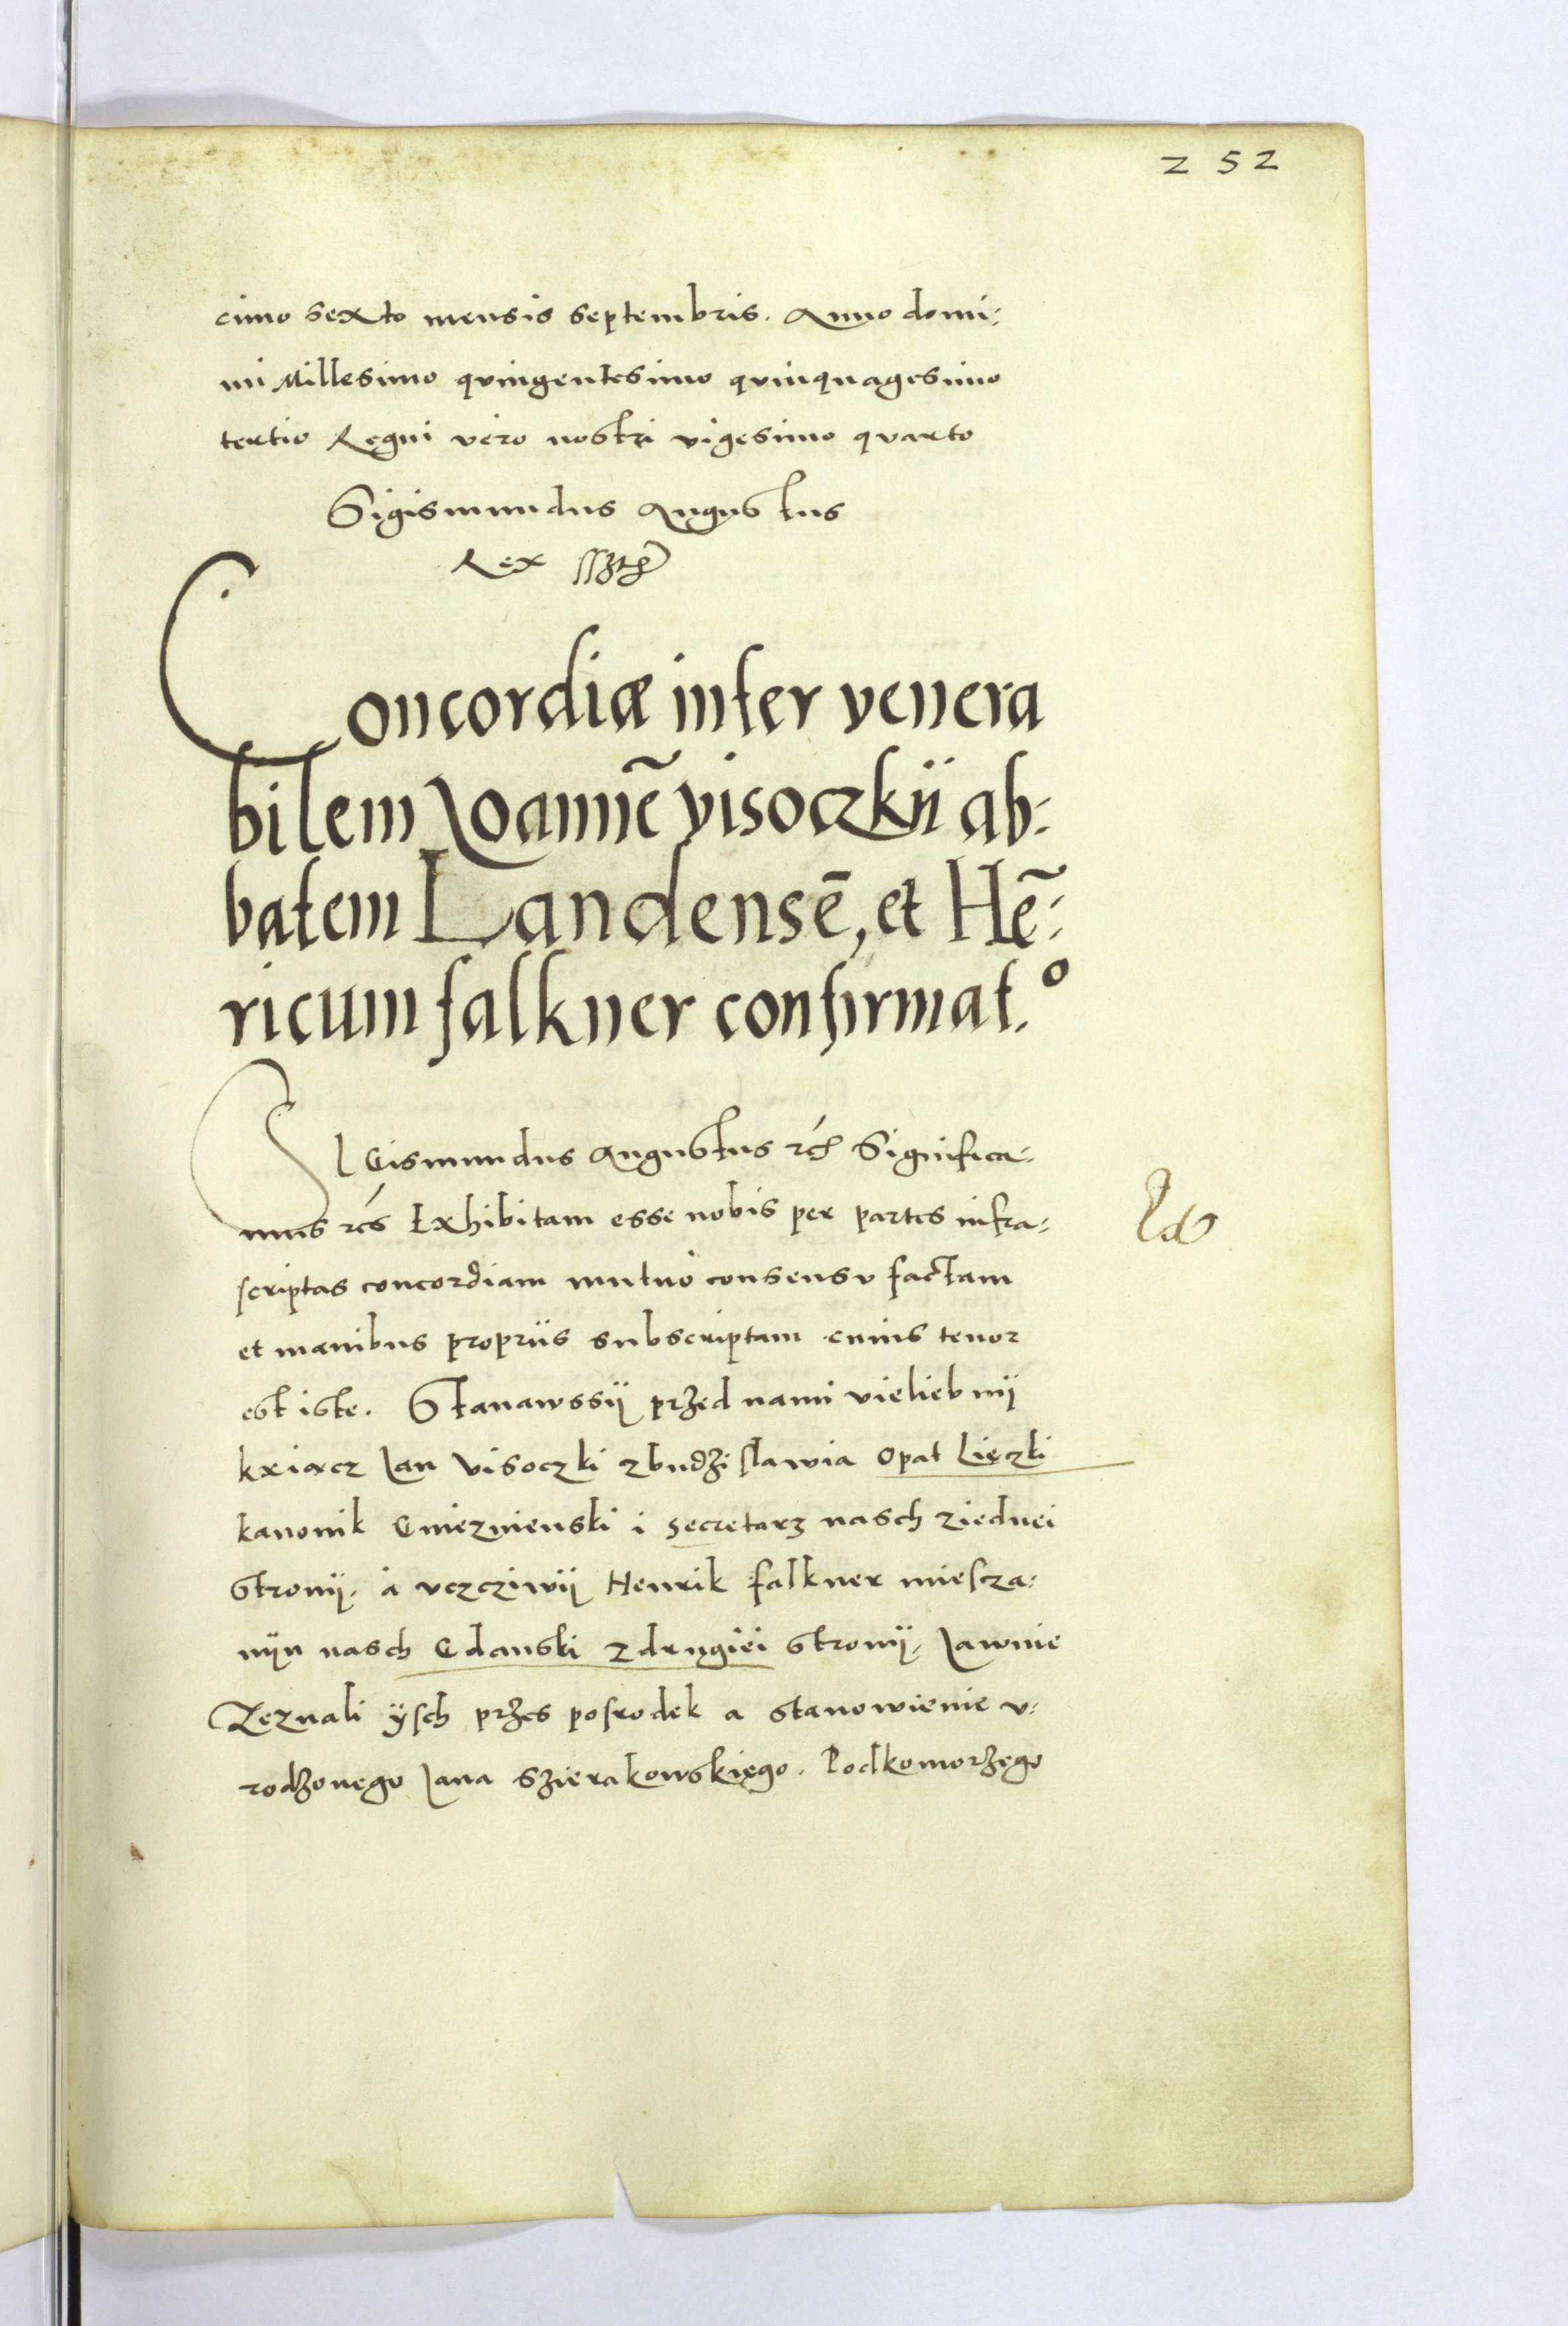 252
cimo sexto mensis septembris. Anno domi:
ni Millesimo quingentesimo quinquagesimo
tertio Regni vero nostri vigesimo quarto
Sigismundus Augustus
Rex
Concordiæ inter venera
bilem Joannē visoczkii ab:
batem Landensē, et Hē:
ricum falkner confirmat.o
SIGismundus Augustus rć Significa:
mus rć Exhibitam esse nobis per partes infra:
scriptas concordiam mutuo consensu factam
et manibus propriis subscriptam cuius tenor
est iste. Stanawssÿ przed nami vieliebnÿ
kxiącz Jan Visoczki zbudzislawia Opat Lięczki
kanonik Gniezniensk i secretarz nasch ziednei
stronÿ. á vczcziwÿ Henrik falkner miescza:
nÿn nasch Gdanski zdrugiei stronÿ, Jawnie
Zeznali ÿsch przes posrodek a stanowienie v:
rodzonego Jana Szierakowskięgo. Podkomorzego